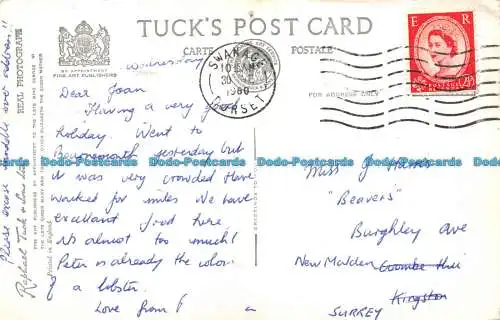 TUCK'S POST CARD
CARTE
POSTALE
BY APPOINTMENT
FINE ART PUBLISHERS
REAL PHOTOGRAPH
SWANAGE
10
30
1960
DORSET
E R
POSTAGE
REVENUE
2½D
FOR ADDRESS ONLY
Wednesday
Dear Joan
Having a very good
holiday. Went to
Bournemouth yesterday but
it was very crowded. Have
walked for miles. We have
excellant food here
its almost too much!
Peter is already the colour
of a lobster.
Love from
Please excuse
Raphael Tuck & Sons Ltd
Printed in England
Miss J
"Beavers"
Burghley Ave
New Malden Coombe Hill
Kingston
SURREY
Bodo-Postcards